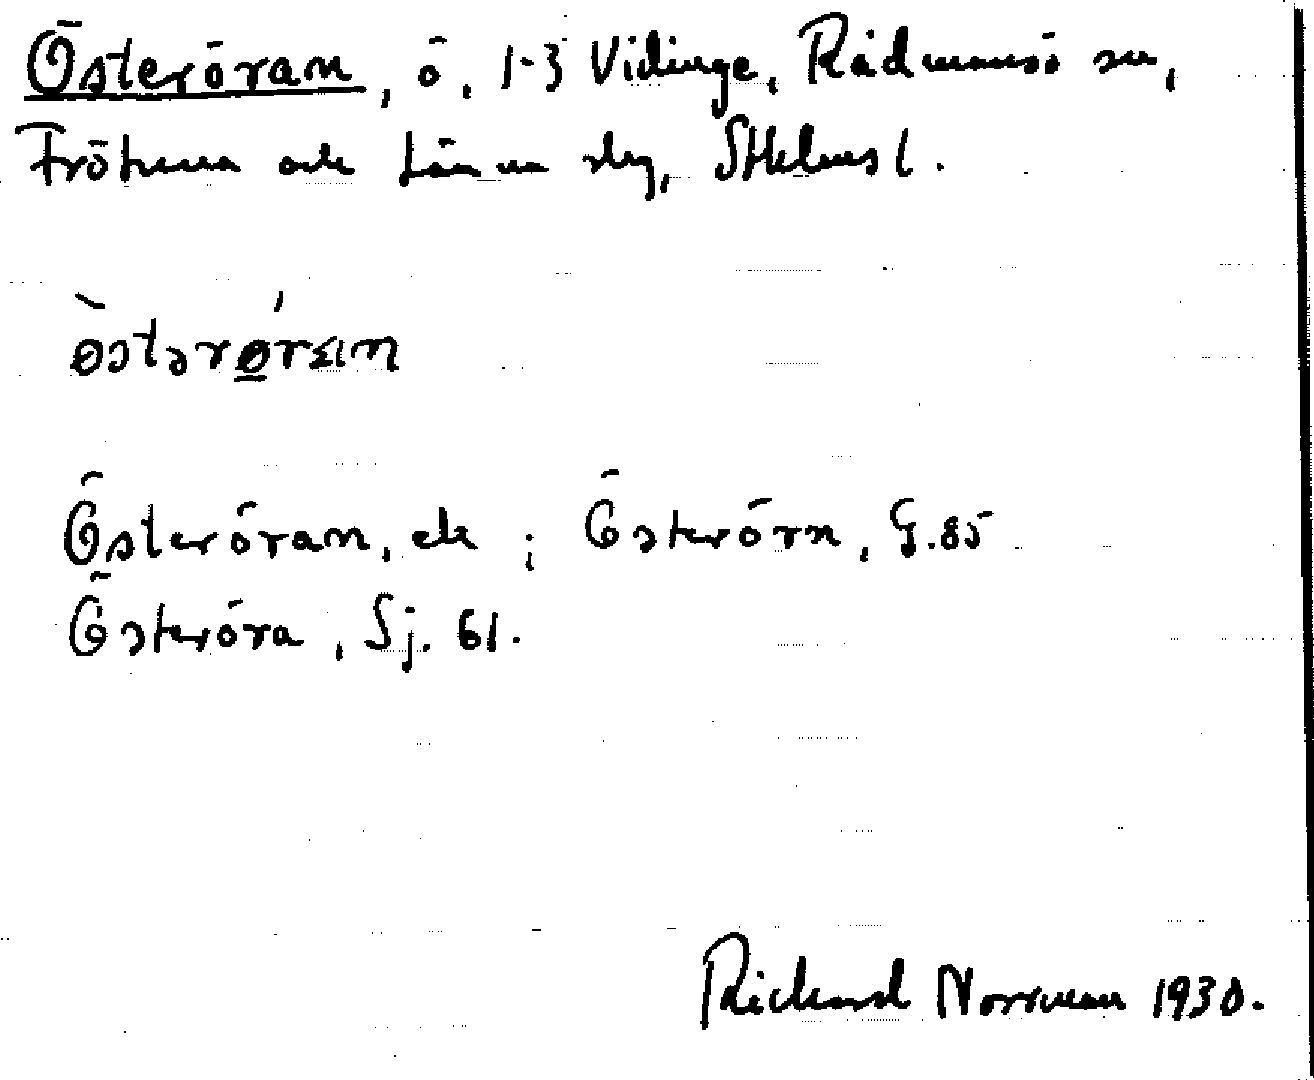 Österöran, ö, 1-3 Vidinge, Rådmansö sn,
Frötuna och Länna slg, Sthlms l.
òstərǿran
Österöran, ek ; Österörn, G. 85
Österöra, Sj. 61.
Rickard Norrman 1930.